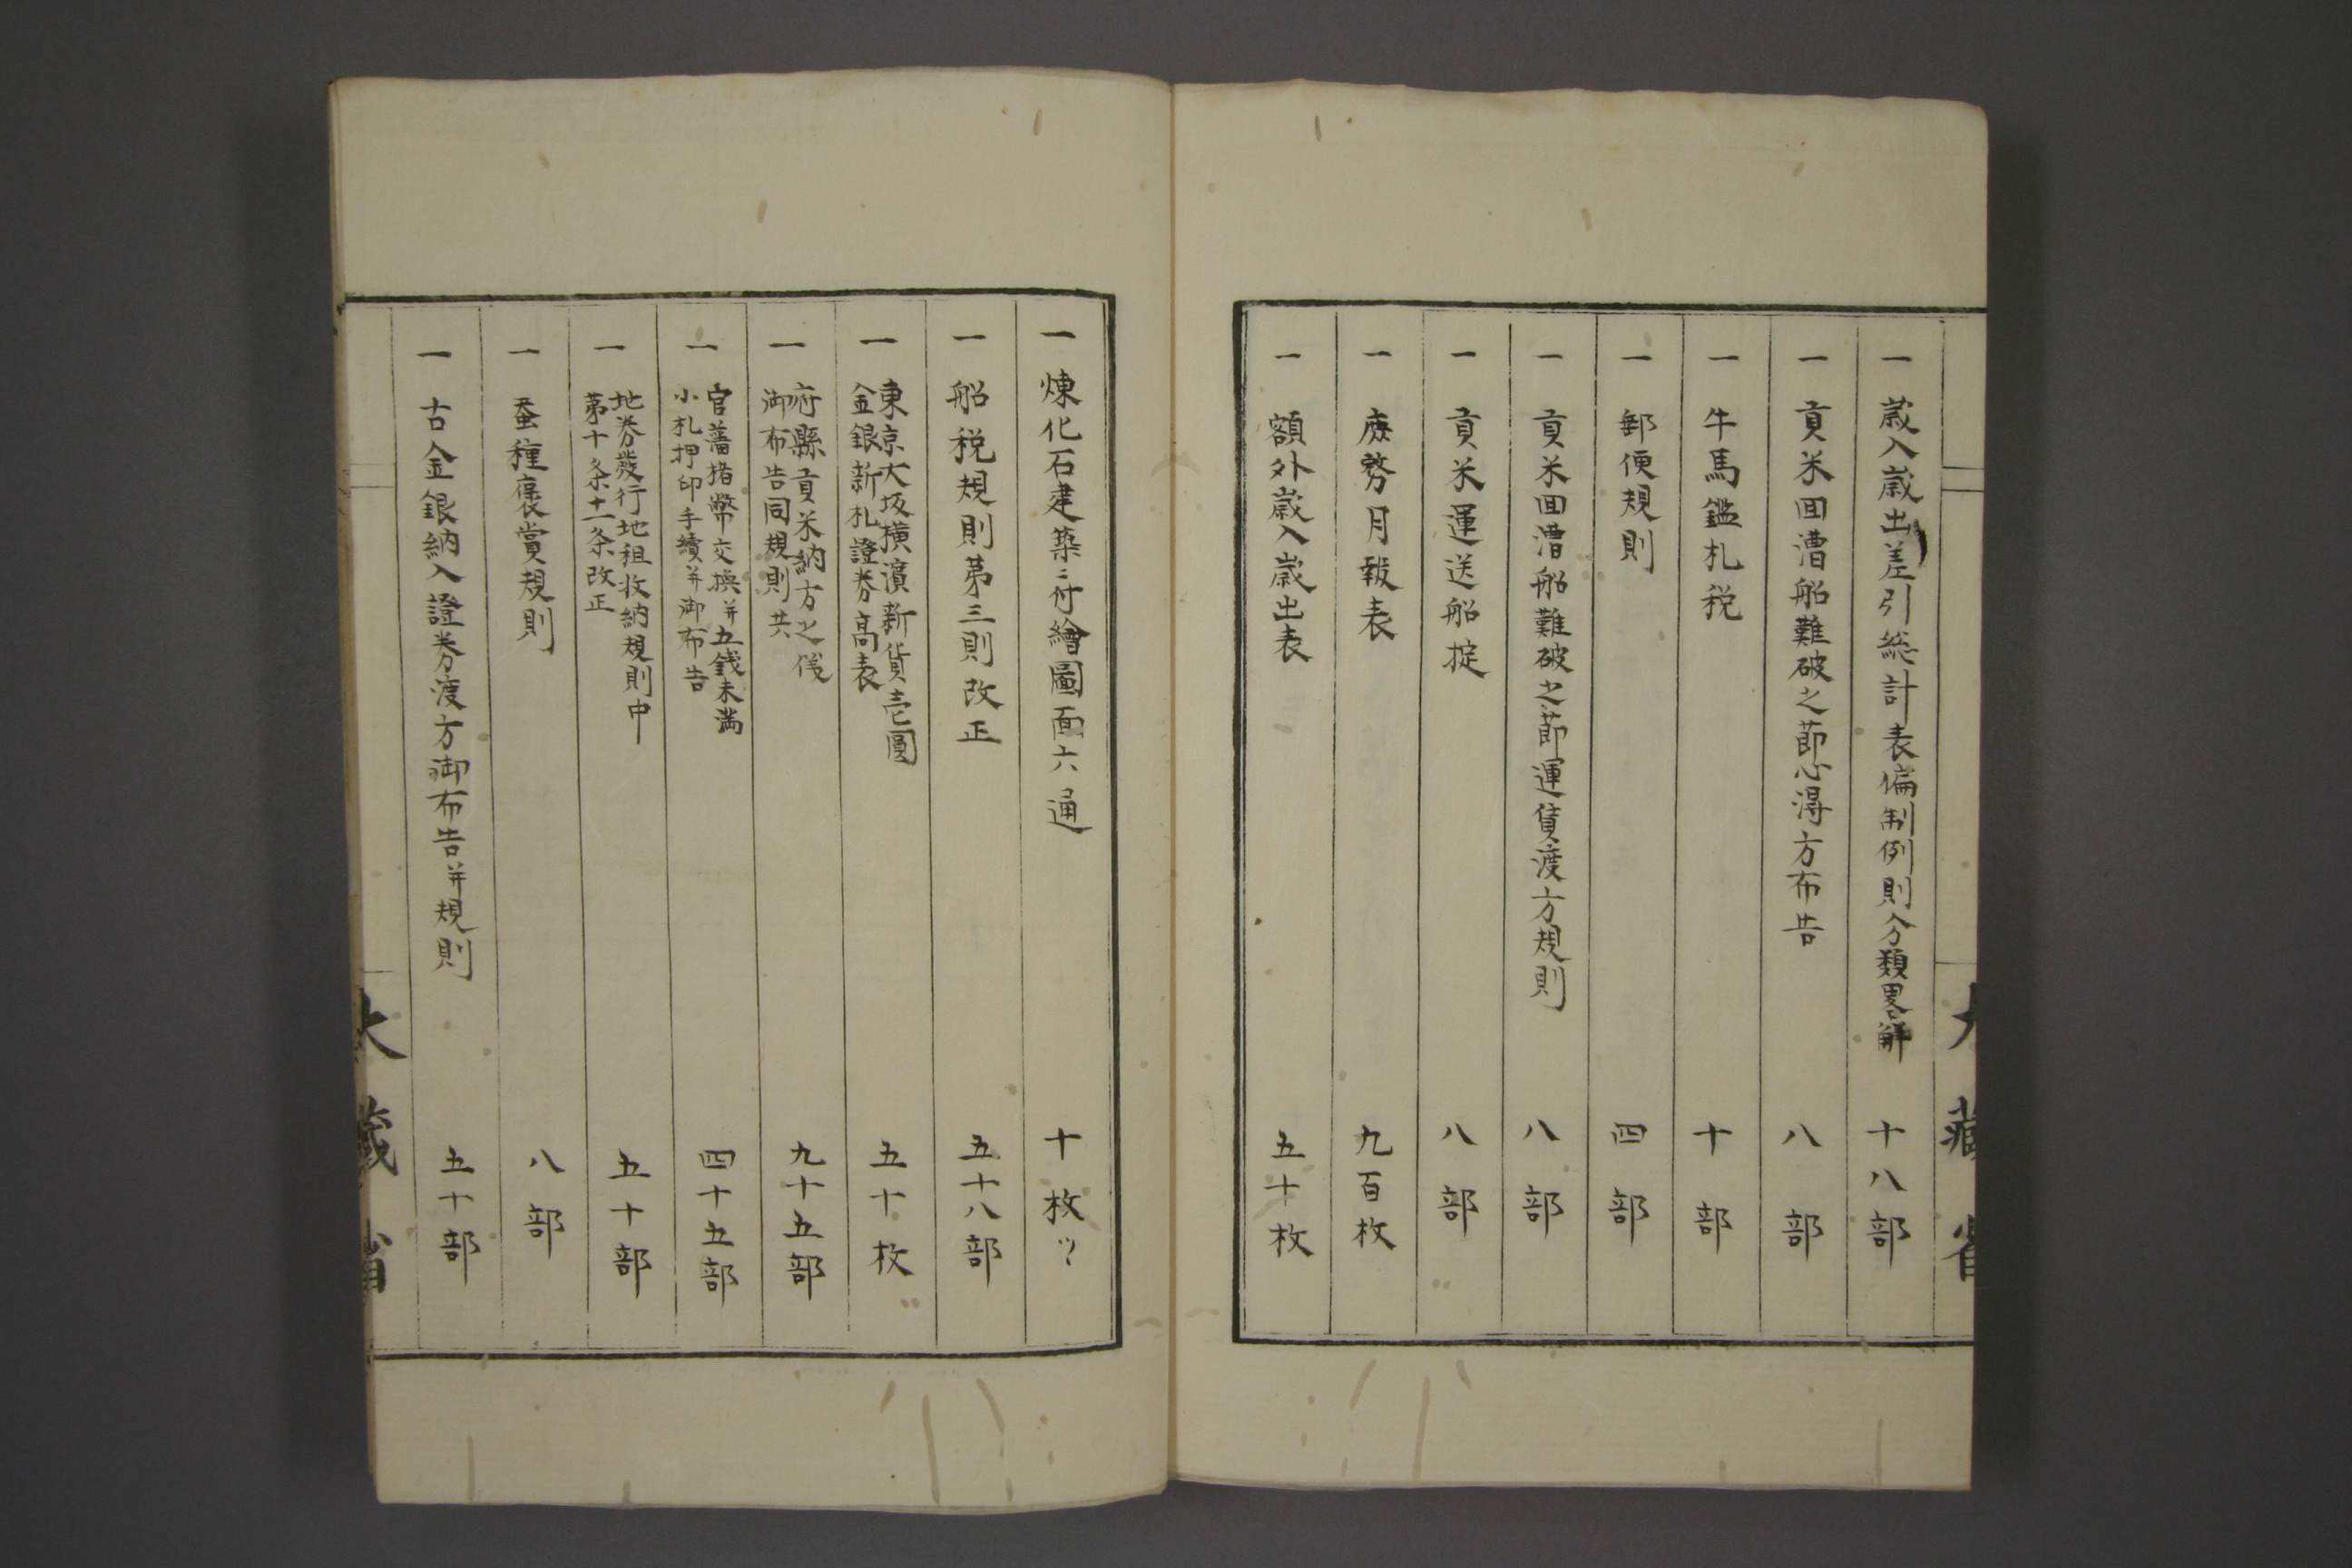 一 歳入歳出差引総計表偏制例則分類畧解 十八部
一 貢米回漕船難破之節心得方布告 八部
一 牛馬鑑札税 十部
一 郵便規則 四部
一 貢米回漕船難破之節運賃渡方規則 八部
一 貢米運送船掟 八部
一 庶務月報表 九百枚
一 額外歳入歳出表 五十枚
大藏省
一 煉化石建築ニ付繪圖面六通 十枚ツヽ
一 船税規則第三則改正 五十八部
一 東京大坂横濱新貨壱圓
金銀新札證券高表 五十枚
一 府縣貢米納方之儀
御布告同規則共 九十五部
一 官藩楮幣交換并五銭未満
小札押印手續并御布告 四十五部
一 地券發行地租收納規則中
第十条十一条改正 五十部
一 蚕種褒賞規則 八部
一 古金銀納入證券渡方御布告并規則 五十部
大藏省